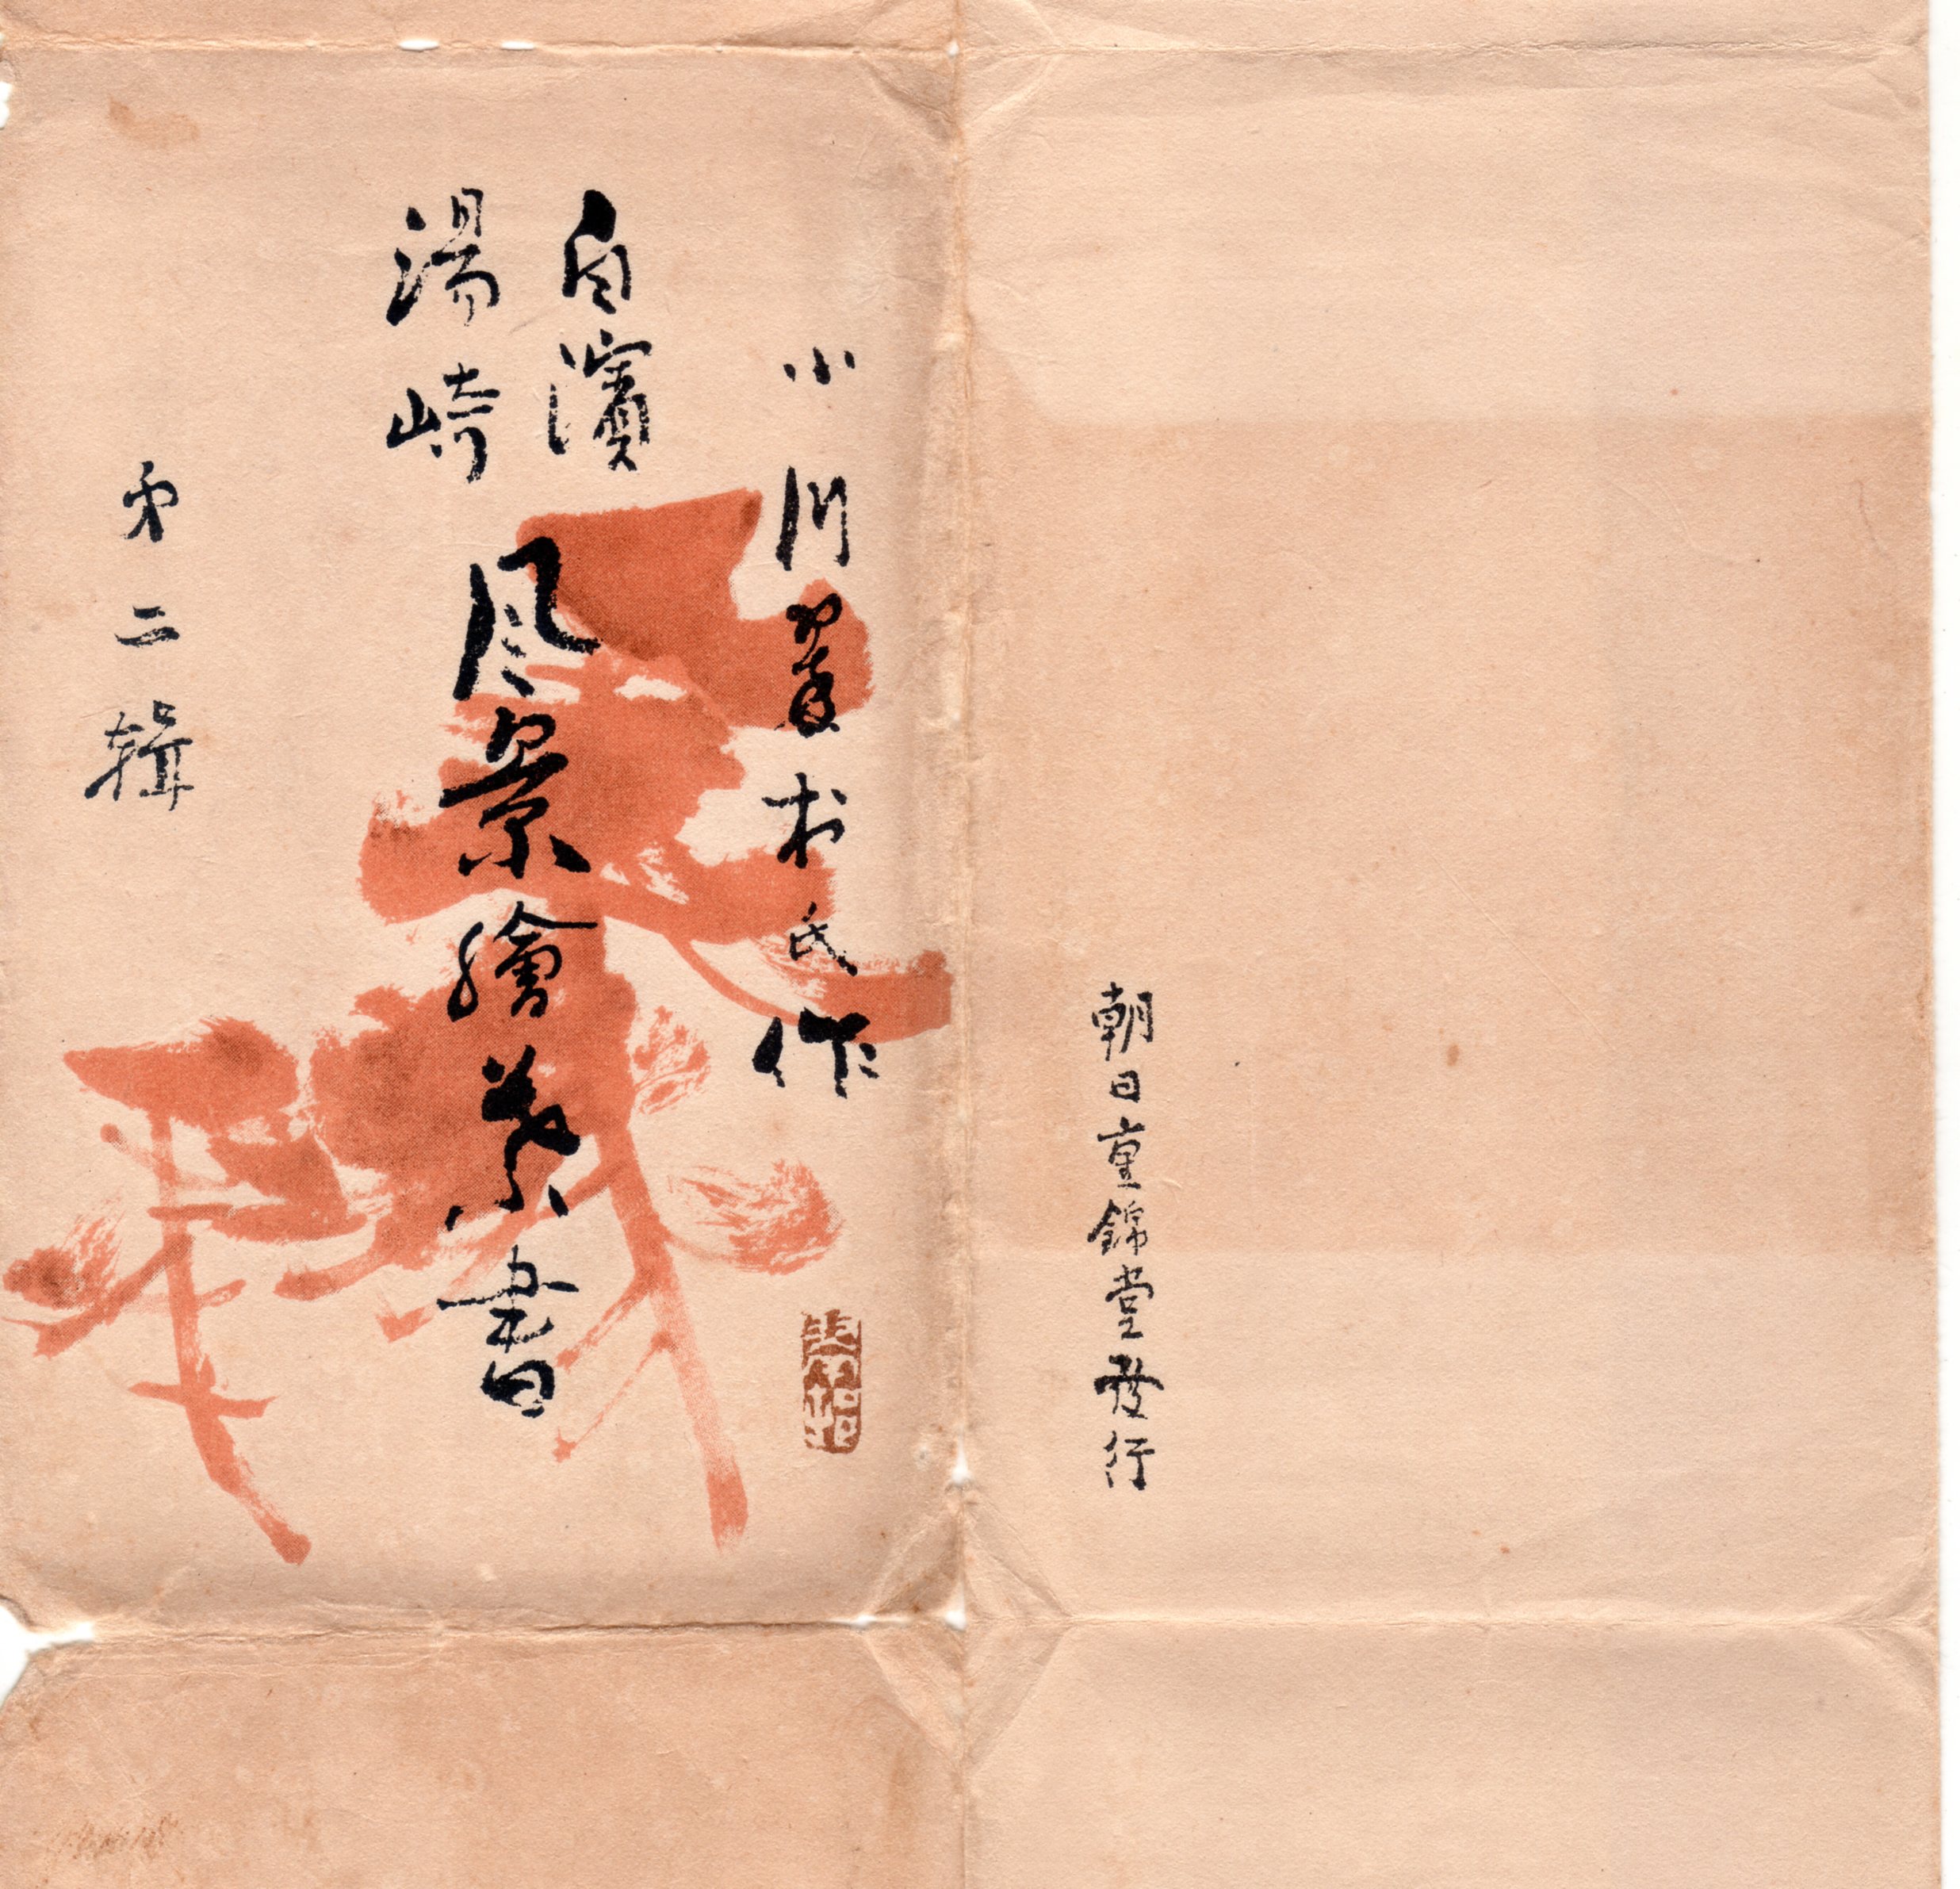 朝日錦堂發行
小川翠村氏作
白濱
湯崎
風景繪葉書
第二輯